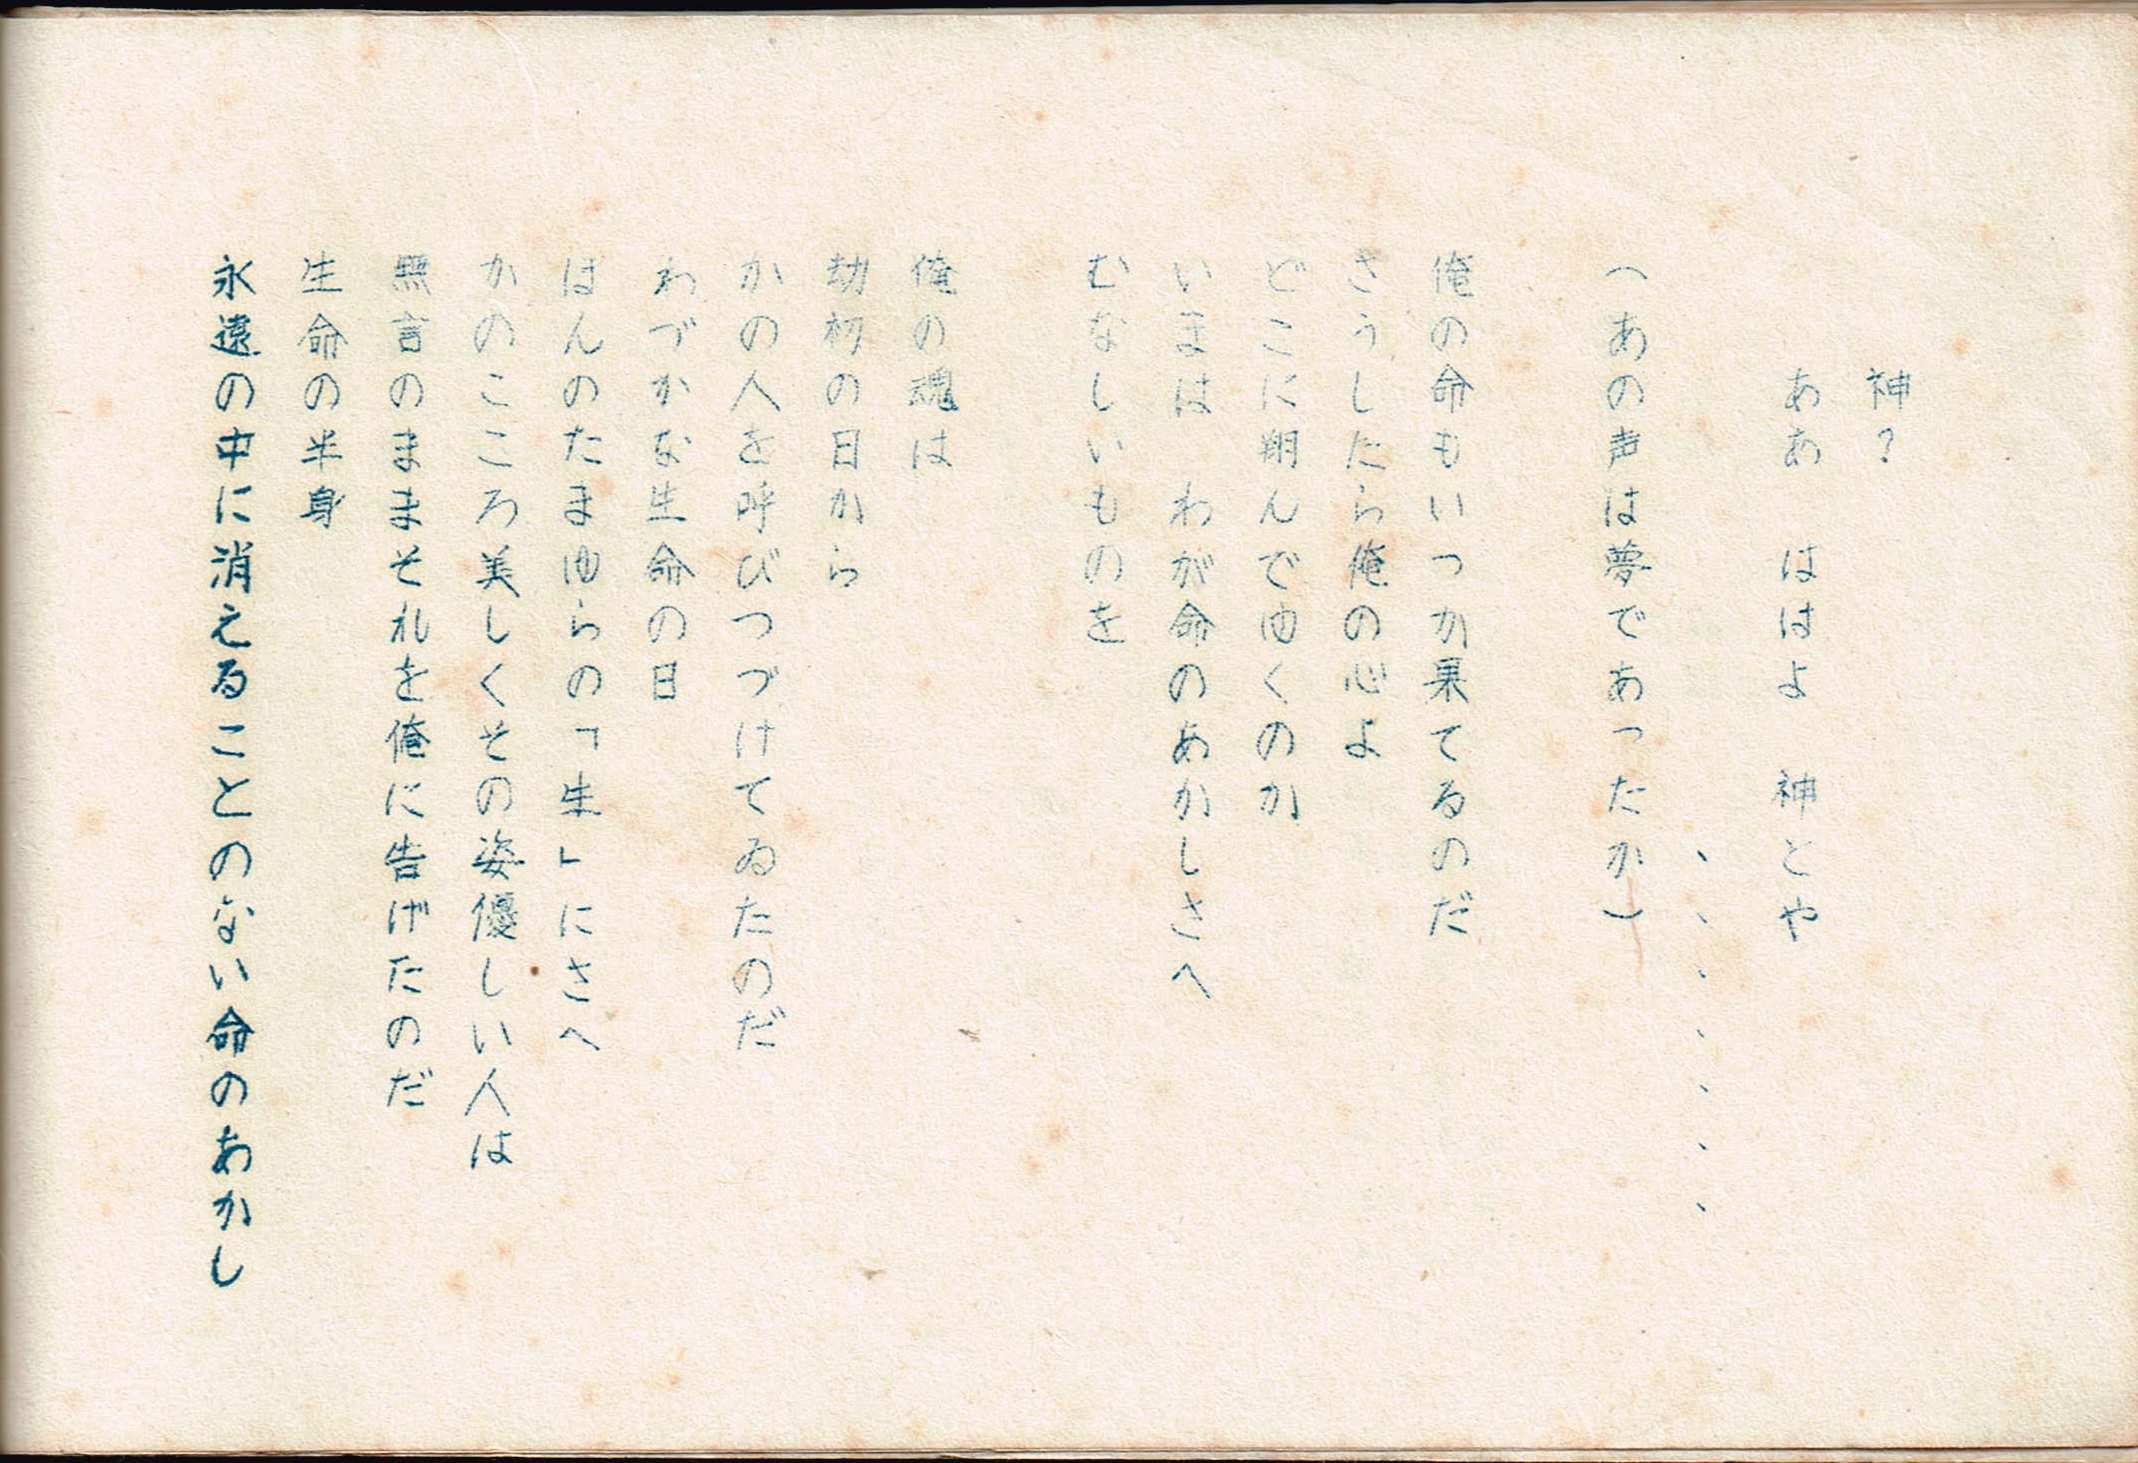 神?
ああ　ははよ　神とや
、、、、、、、
（あの声は夢であったか）
俺の命もいつか果てるのだ
さうしたら俺の心よ
どこに翔んでゆくのか
いまは　わが命のあかしさへ
むなしいものを
俺の魂は
劫初の日から
かの人を呼びつづけてゐたのだ
わづかな生命の日
ほんのたまゆらの「生」にさへ
かのこころ美しくその姿優しい人は
無言のままそれを俺に告げたのだ
生命の半身
永遠の中に消えることのない命のあかし